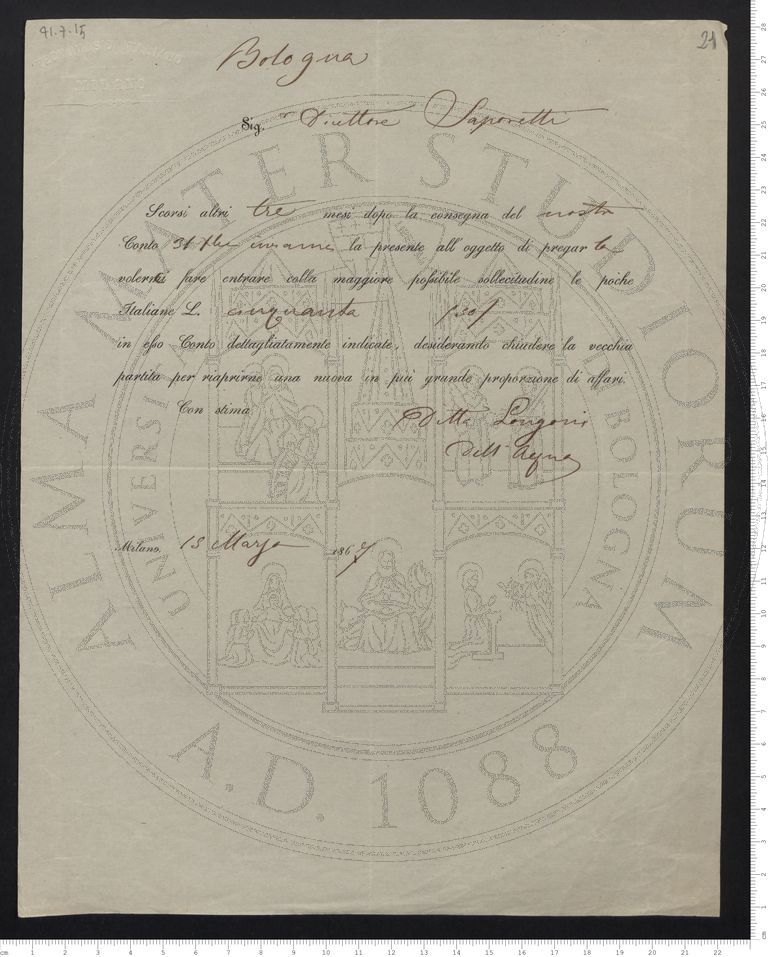 91.7.15
21
Bologna
Sig.r Direttore Saporetti
Scorsi altri tre mesi dopo la consegna del nostro
Conto 31 Xbre inviamo la presente all'oggetto di pregarla
volermi fare entrare colla maggiore possibile sollecitudine le poche
Italiane L. cinquanta /50/
in esso Conto dettagliatamente indicate, desiderando chiudere la vecchia
partita per riaprirne una nuova in più grande proporzione di affari.
Con stima
Ditta Longoni
Dell'Acqua
Milano, 13 Marzo 1867
ALMA MATER STUDIORUM
UNIVERSITÀ BOLOGNA
A.D. 1088